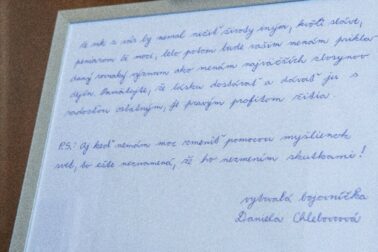 že nik z vás by nemal ničiť životy iným, kvôli sláve,
peniazom či moci, lebo potom bude vašim menám
rovnaký význam ako menám najväčších zlosynov
dejín. Pamätajte, že lásku dostávať a dávať ju s
radosťou ostatným, je pravým profitom žitia.
P.S.: Aj keď nemám moc zmeniť pomocou myšlienok
svet, to ešte neznamená, že ho nezmením skutkami!
vytrvalá bojovníčka
Daniela Chlebovcová